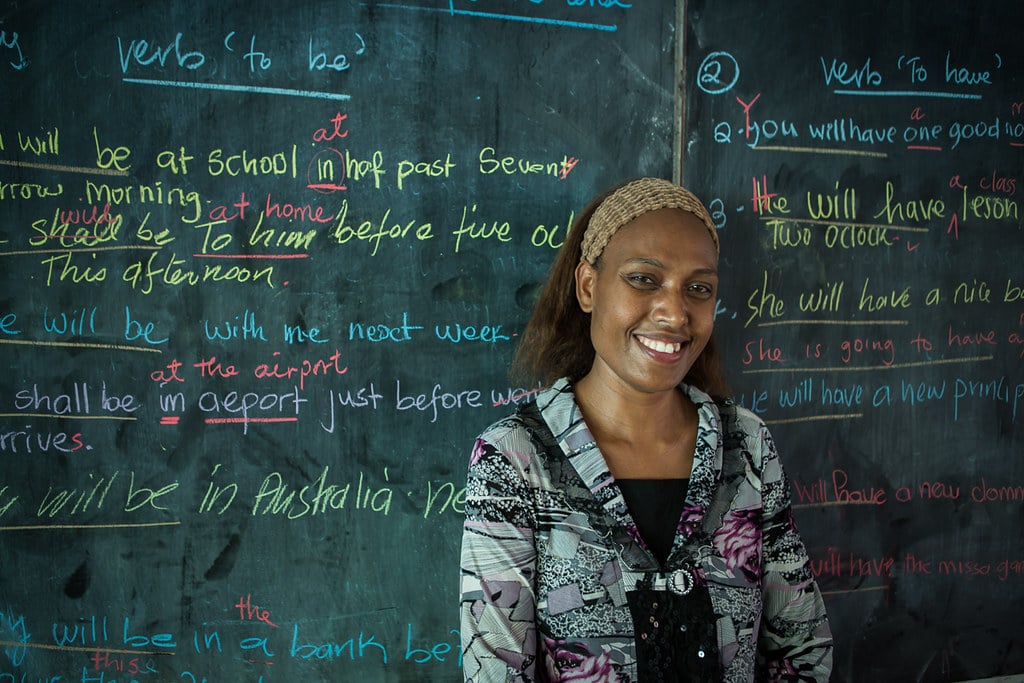 verb 'to be'
at
will be at school in haf past Seven
rrow morning.
will at home
shall be To him before five
This afternoon.
will be with me next week.
at the airport
shall be in aeport just before
rrives.
will be in Australia
the
will be in a bank be
this
2 Verb 'To have'
Y a
2. you will have one good
a class
3. He will have leson
Two oclock.
she will have a nice
she is going to have a
will have a new princip
will have a new
will have the